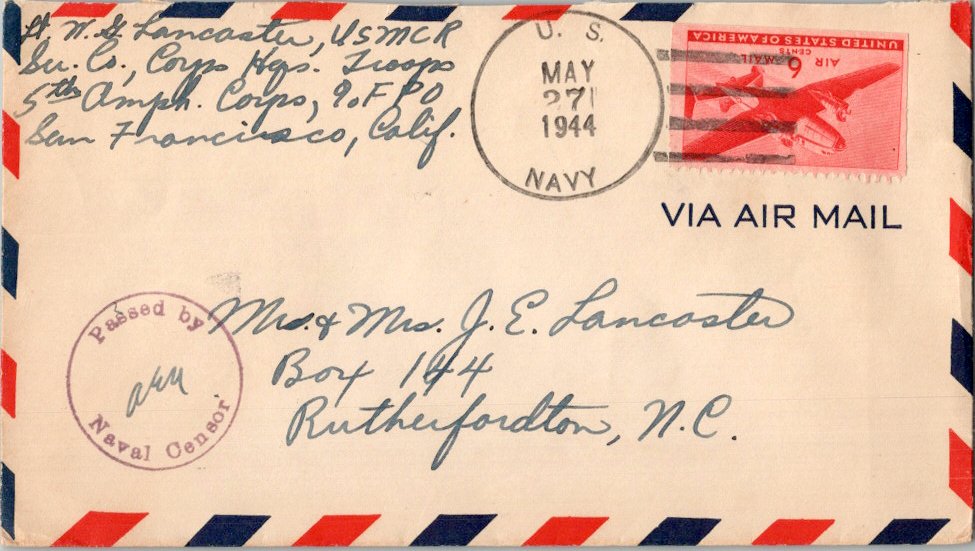 Lt. W. G. Lancaster, USMCR
Ser. Co., Corps Hqs. Troops
5th Amph. Corps, %FPO
San Francisco, Calif.
U. S.
MAY
27
1944
NAVY
UNITED STATES OF AMERICA
6 CENTS
AIR MAIL
VIA AIR MAIL
Mr. & Mrs. J. E. Lancaster
Box 144
Rutherfordton, N.C.
Passed by
Naval Censor